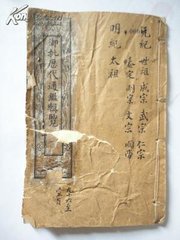 元紀 世祖 成宗 武宗 仁宗
泰定 明宗 文宗 順帝
明紀 太祖
御批歷代通鑑輯覽